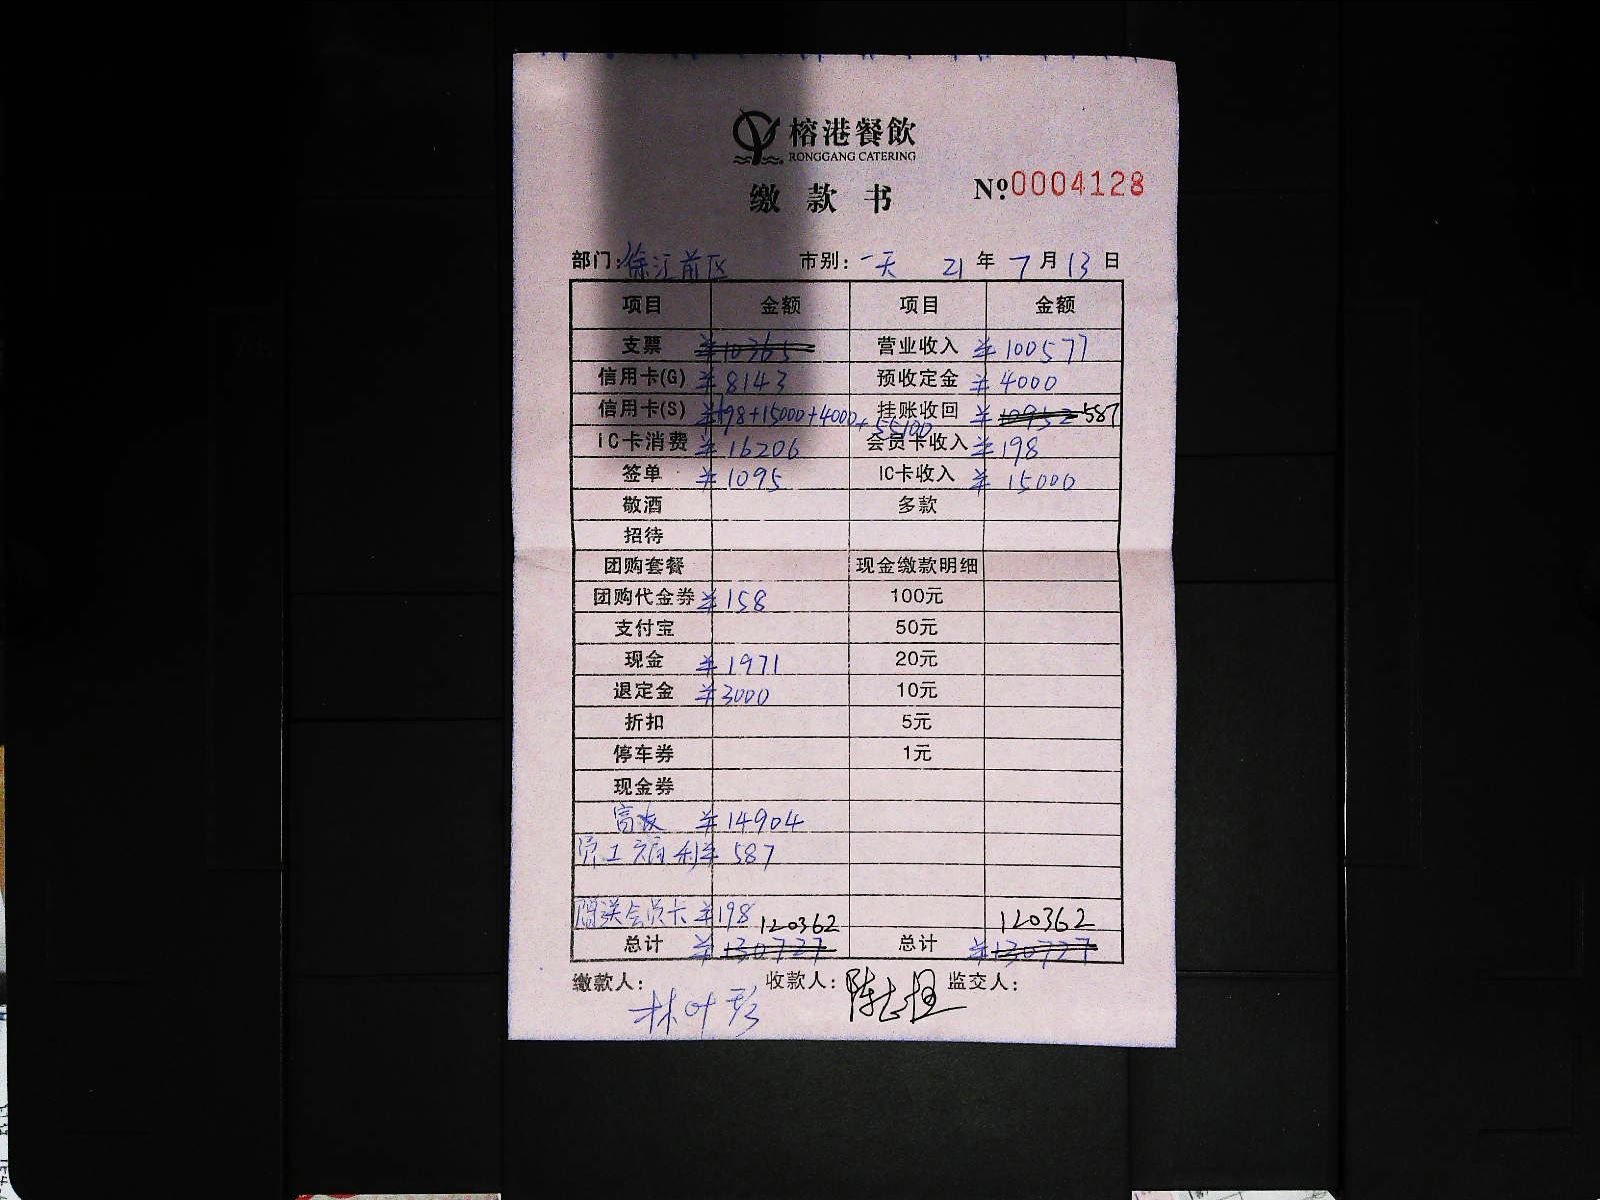 榕港餐飲
RONGGANG CATERING
缴款书 №0004128
部门：徐汇前区 市别：一天 21年7月13日
项目 金额 项目 金额
支票 ¥10365 营业收入 ¥100577
信用卡(G) ¥8143 预收定金 ¥4000
信用卡(S) ¥198+15000+4000+55100 挂账收回 ¥10952 587
IC卡消费 ¥16206 会员卡收入 ¥198
签单 ¥1095 IC卡收入 ¥15000
敬酒 多款
招待
团购套餐 现金缴款明细
团购代金券 ¥158 100元
支付宝 50元
现金 ¥1971 20元
退定金 ¥3000 10元
折扣 5元
停车券 1元
现金券
¥14904
员工福利 ¥587
赠送会员卡 ¥198
120362 120362
总计 ¥130727 总计 ¥130727
缴款人：林叶彩 收款人：陈 监交人：